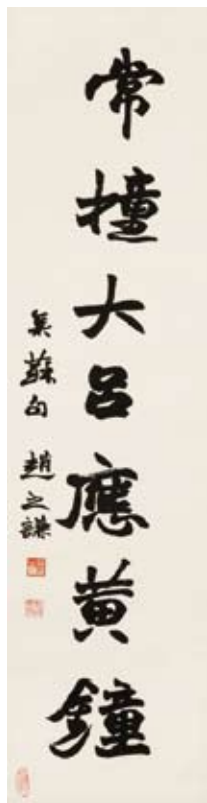 常撞大吕應黄鐘
集蘇句 趙之謙